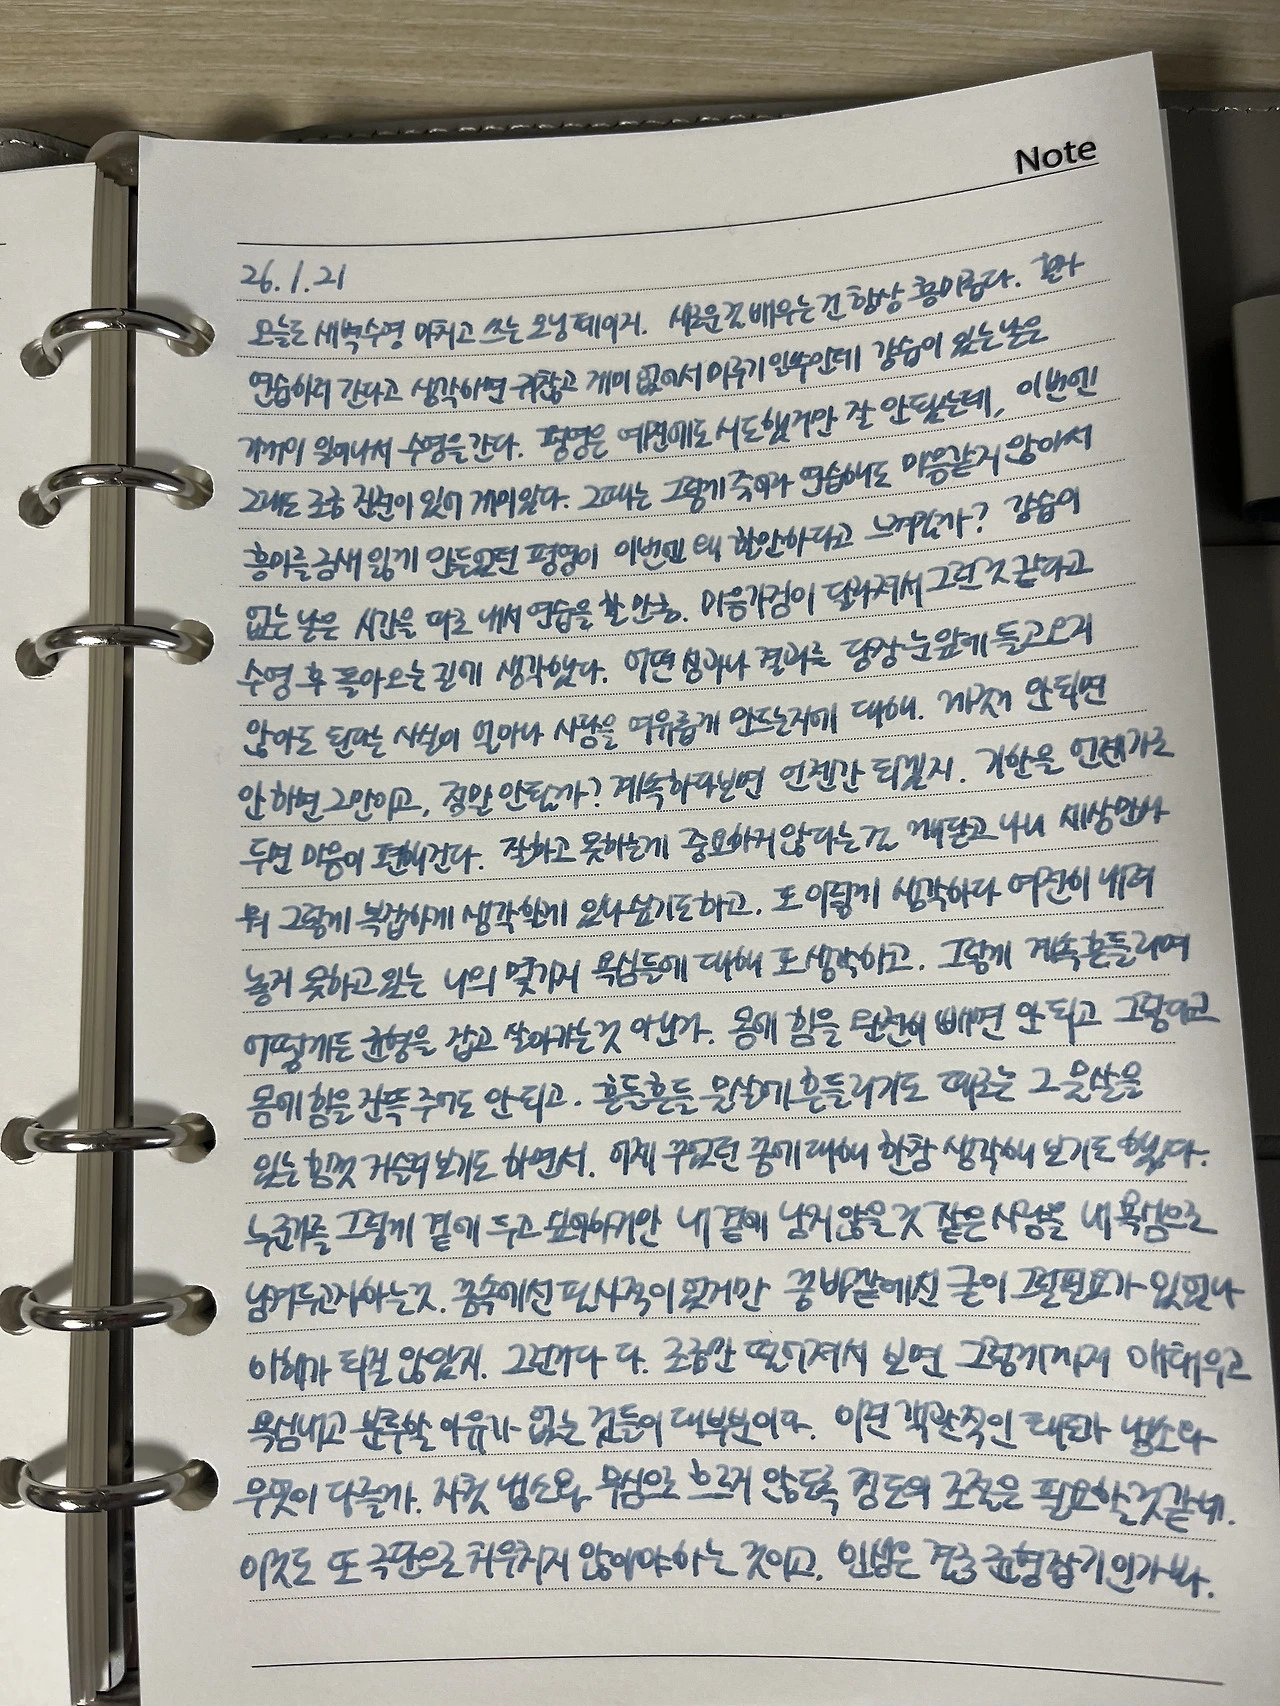 Note
26. 1. 21
오늘도 새벽수영 마치고 쓰는 모닝페이지. 새로운 걸 배우는 건 항상 흥미롭다. 혼자
연습하러 간다고 생각하면 귀찮고 재미 없어서 미루기 일쑤인데 강습이 있는 날은
기꺼이 일어나서 수영을 간다. 평영은 예전에도 시도했지만 잘 안됐는데, 이번엔
그래도 조금 진전이 있어 재미있다. 그때는 그렇게 죽어라 연습해도 마음같지 않아서
흥미를 금새 잃게 만들었던 평영이 이번엔 왜 할만하다고 느껴질까? 강습이
없는 날은 시간을 따로 내서 연습을 할 만큼. 마음가짐이 달라져서 그런 것 같다고
수영 후 돌아오는 길에 생각했다. 어떤 성과나 결과를 당장 눈앞에 들고오지
않아도 된다는 사실이 얼마나 사람을 여유롭게 만드는지에 대해. 까짓거 안되면
안 하면 그만이고, 정말 안될까? 계속하다보면 언젠간 되겠지. 기한을 언제가로
두면 마음이 편해진다. 잘하고 못하는게 중요하지 않다는 걸 깨닫고 나니 세상만사
뭐 그렇게 복잡하게 생각할게 있나 싶기도하고. 또 이렇게 생각하다 여전히 내려
놓지 못하고 있는 나의 몇가지 욕심들에 대해 또 생각하고. 그렇게 계속 흔들리며
어떻게든 균형을 잡고 살아가는 것 아닌가. 몸에 힘을 완전히 빼면 안 되고 그렇다고
몸에 힘을 잔뜩 주어도 안 되고. 흔들흔들 물살에 흔들리기도 때로는 그 물살을
있는 힘껏 거슬러 보기도 하면서. 어제 꾸었던 꿈에 대해 한참 생각해 보기도 했다.
누군가를 그렇게 곁에 두고 싶어하지만 내 곁에 남지 않을 것 같은 사람을 내 욕심으로
남겨두고자하는 것. 꿈속에선 필사적이었지만 꿈 바깥에선 굳이 그럴필요가 있었나
이해가 되질 않았지. 그런거다 다. 조금만 떨어져서 보면 그렇게까지 애태우고
욕심내고 분투할 이유가 없는 것들이 대부분이다. 이런 객관적인 태도가 냉소와
무엇이 다를까. 자칫 냉소와 무심으로 흐르지 않도록 정도의 조절은 필요할 것 같네.
이것도 또 극단으로 치우치지 않아야 하는 것이고. 인생은 결국 균형잡기인가 봐.